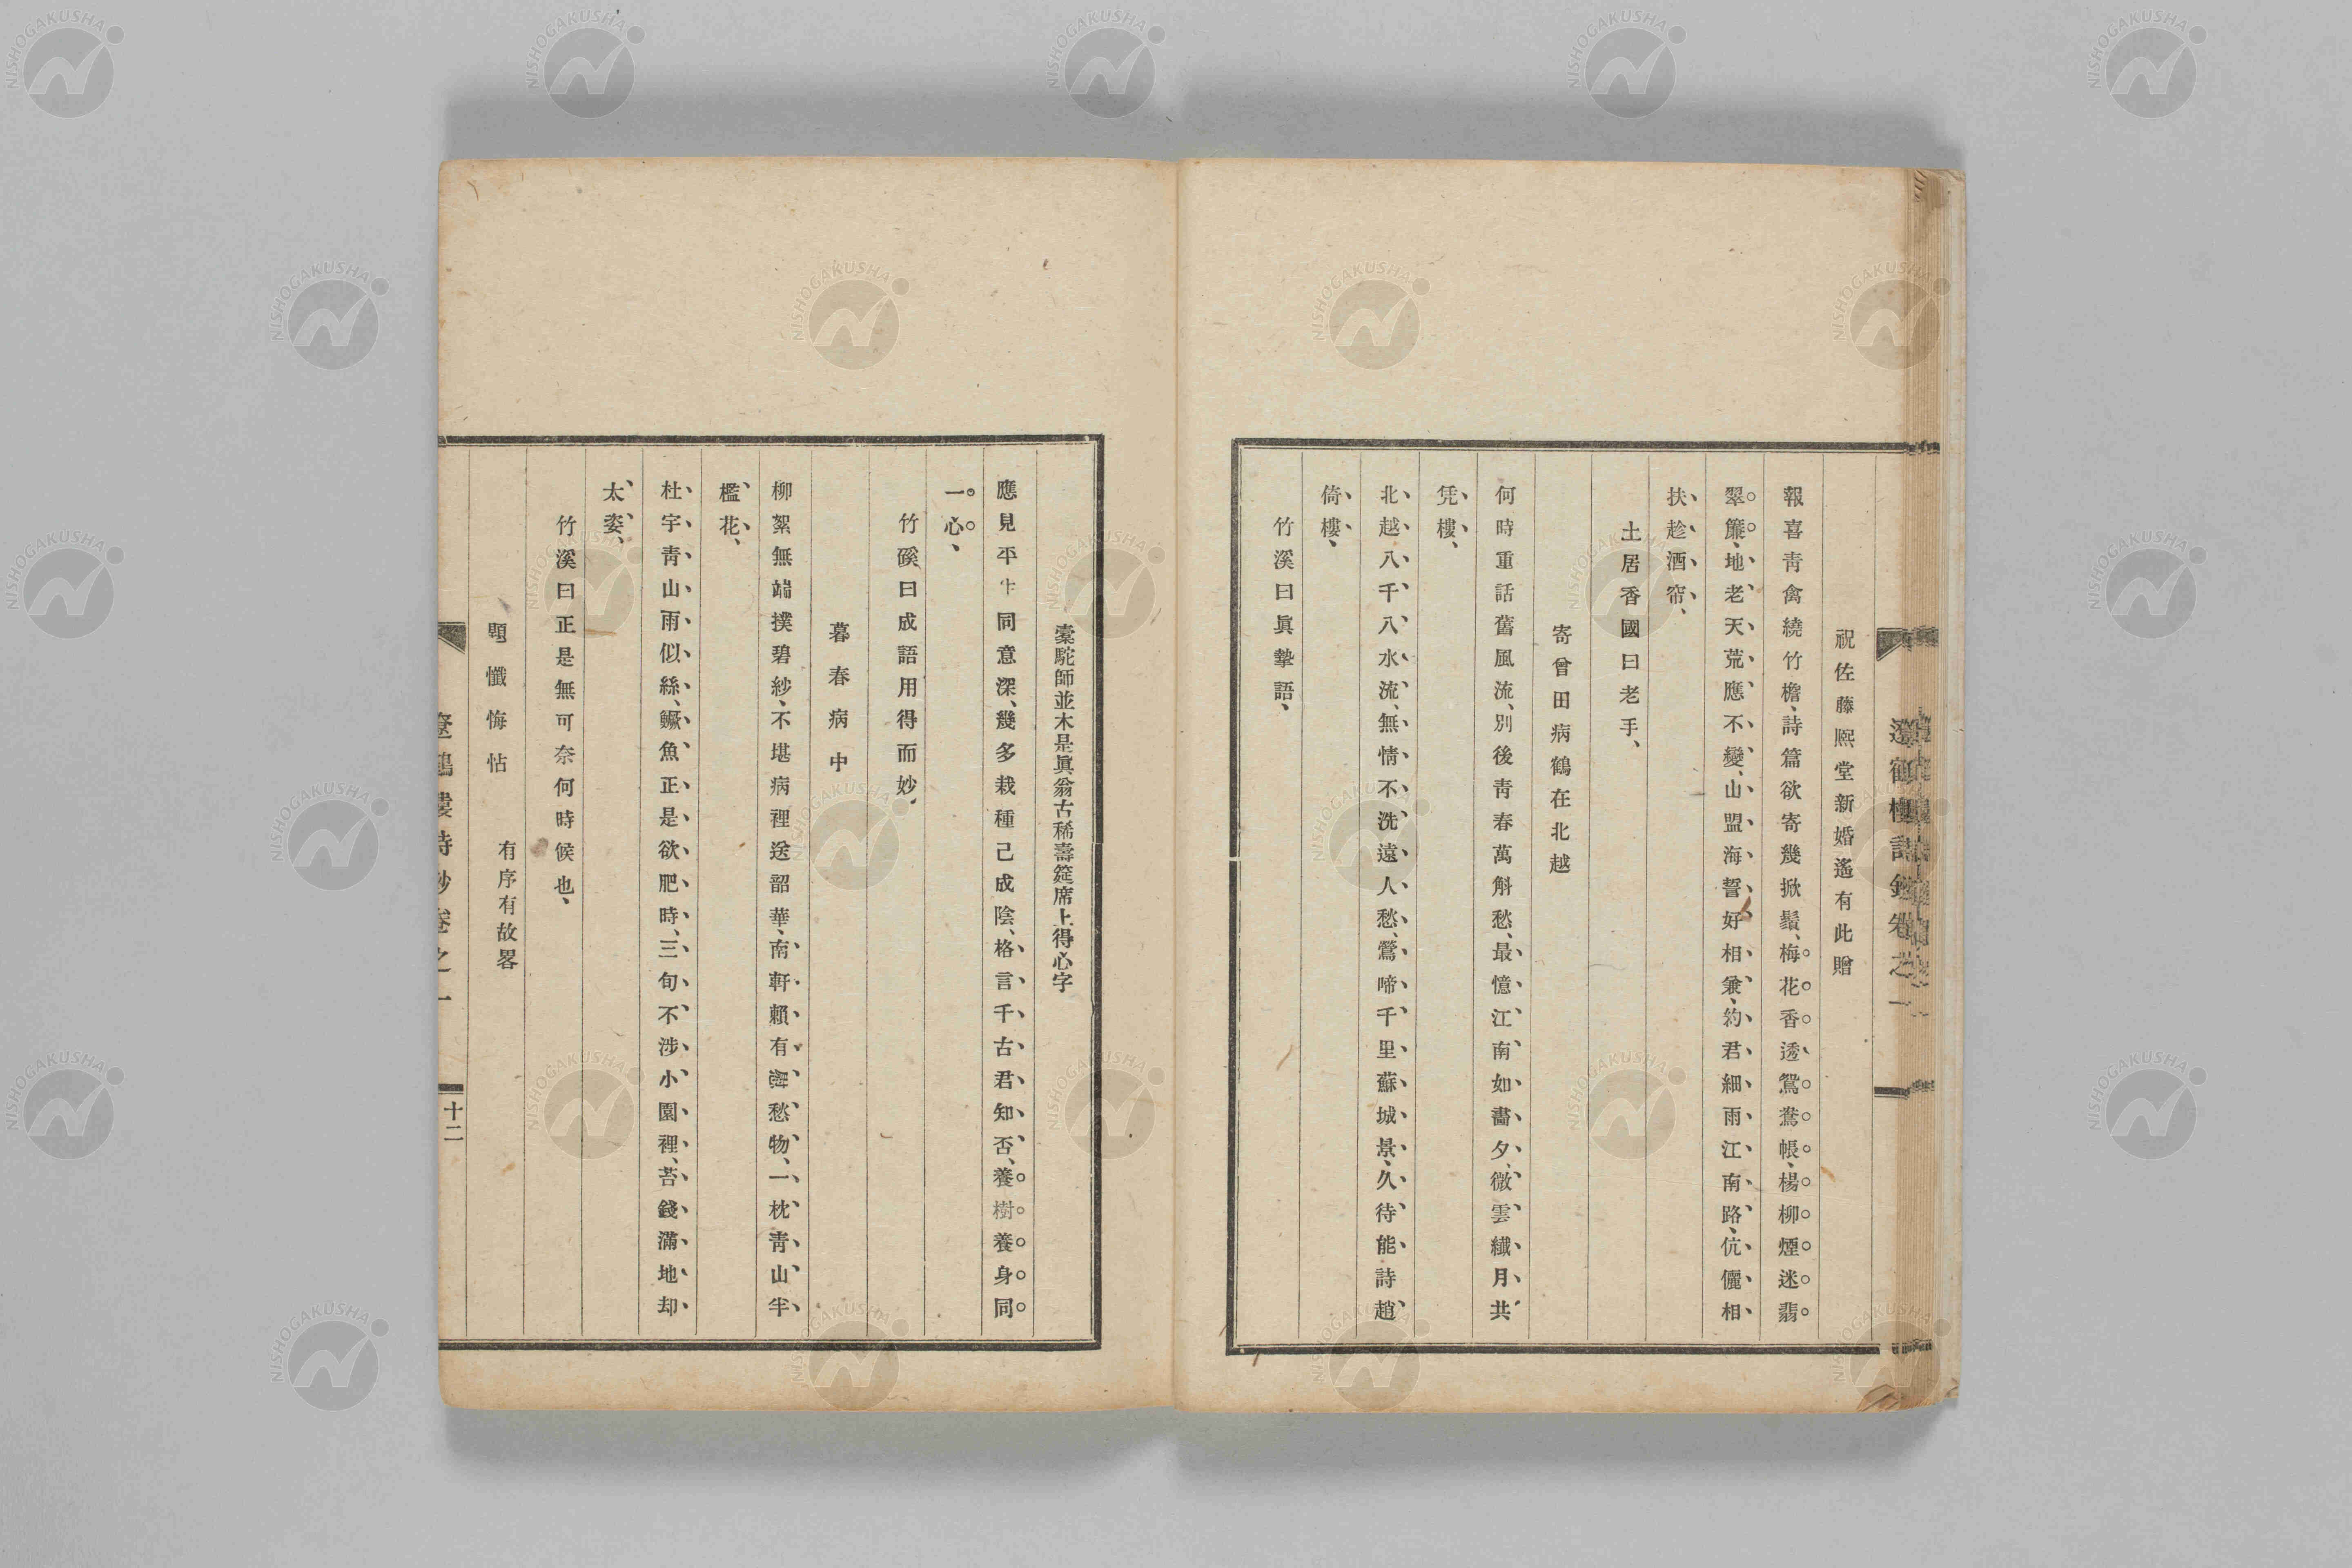 祝佐藤熈堂新婚遙有此贈
報喜靑禽繞竹檐、詩篇欲寄幾掀鬚、梅花香透鴛鴦帳、楊柳煙迷翡
翠簾、地老天荒應不變、山盟海誓好相兼、約君細雨江南路、伉儷相
扶趁酒帘、
土居香國曰老手、
寄曾田病鶴在北越
何時重話舊風流、別後靑春萬斛愁、最憶江南如畵夕、微雲纖月共
凭樓、
北越八千八水流、無情不洗遠人愁、鶯啼千里蘇城景、久待能詩趙
倚樓、
竹溪曰眞摯語、
槖駝師並木是眞翁古稀壽筵席上得心字
應見平生同意深、幾多栽種己成陰、格言千古君知否、養樹養身同
一心、
竹磎曰成語用得而妙、
暮春病中
柳絮無端撲碧紗、不堪病裡送韶華、南軒賴有愁物、一枕靑山半
檻花、
杜宇靑山雨似絲、鱖魚正是欲肥時、三旬不涉小園裡、苔錢滿地却
太姿、
竹溪曰正是無可奈何時候也、
題懺悔帖 有序有故畧
十二